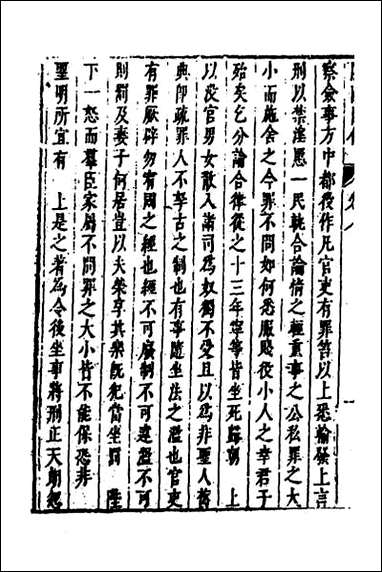 察僉事方中都役作凡官吏有罪笞以上悉輸發上言
刑以禁淫慝一民軌合論情之輕重事之公私罪之大
小而施舍之今罪不問如何悉服賤役小人之幸君子
殆矣乞分論合律從之十三年寧等皆坐死歸朝　上
以沒官男女散入諸司為奴獨不受且以為非聖人舊
典卽疏罪人不孥古之制也有事隨坐法之濫也官吏
有罪厥辟勿宥國之經也經不可廢制不可違濫不可
則罰及妻子何居豈以夫榮享其樂既犯當坐罰　陛
下一怒而羣臣家屬不問罪之大小皆不能保恐非
聖明所宜有　上是之著為令後坐事將刑正天朝怒